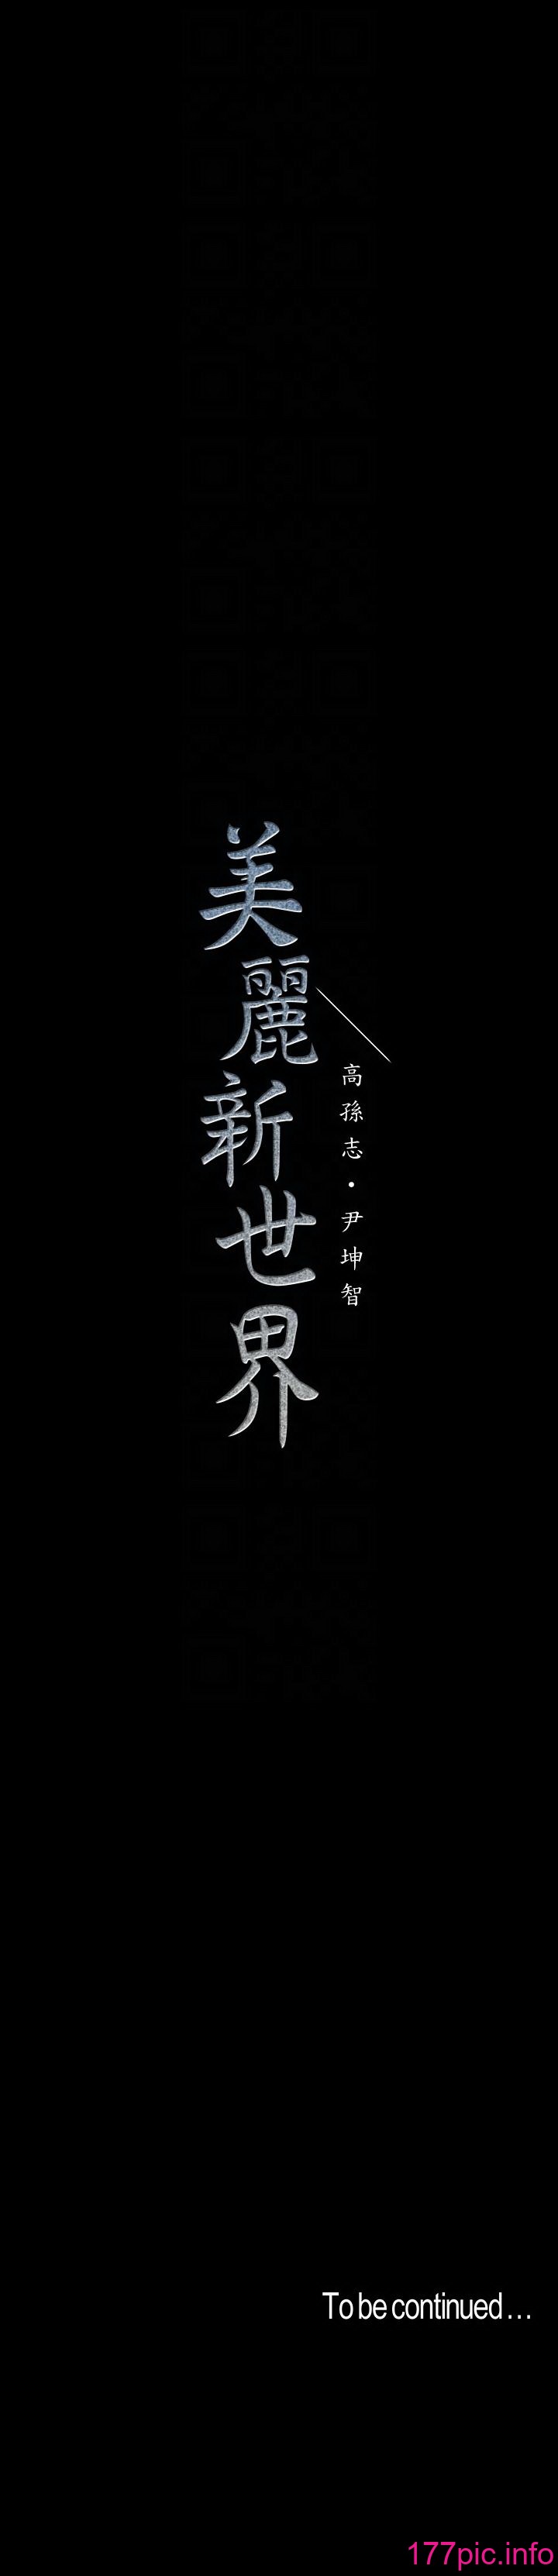 美麗新世界
高孫志・尹坤智
To be continued...
177pic.info